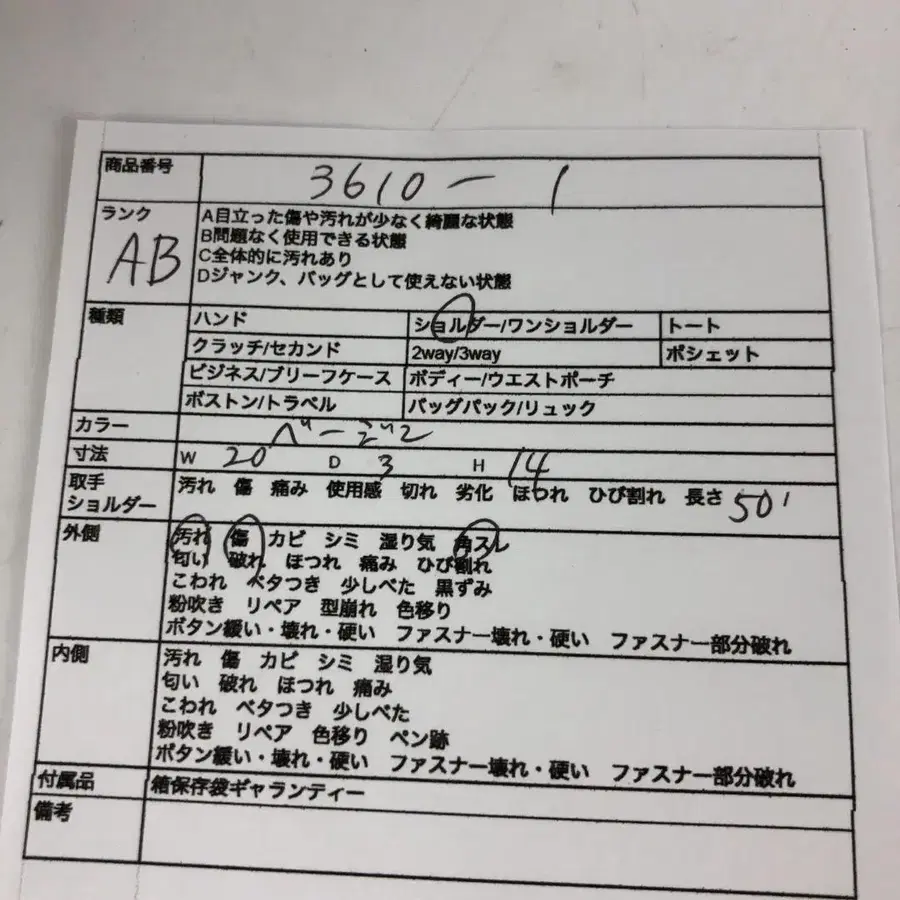 商品番号 3610-1
ランク AB
A目立った傷や汚れが少なく綺麗な状態
B問題なく使用できる状態
C全体的に汚れあり
Dジャンク、バッグとして使えない状態
種類 ハンド ショルダー/ワンショルダー トート
クラッチ/セカンド 2way/3way ポシェット
ビジネス/ブリーフケース ボディー/ウエストポーチ
ボストン/トラベル バッグパック/リュック
カラー
寸法 W 20 D 3 H 14
取手 ショルダー 汚れ 傷 痛み 使用感 切れ 劣化 ほつれ ひび割れ 長さ 50
外側 汚れ 傷 カビ シミ 湿り気 角スレ
匂い 破れ ほつれ 痛み ひび割れ
こわれ ベタつき 少しべた 黒ずみ
粉吹き リペア 型崩れ 色移り
ボタン緩い・壊れ・硬い ファスナー壊れ・硬い ファスナー部分破れ
内側 汚れ 傷 カビ シミ 湿り気
匂い 破れ ほつれ 痛み
こわれ ベタつき 少しべた
粉吹き リペア 色移り ペン跡
ボタン緩い・壊れ・硬い ファスナー壊れ・硬い ファスナー部分破れ
付属品 箱保存袋ギャランティー
備考